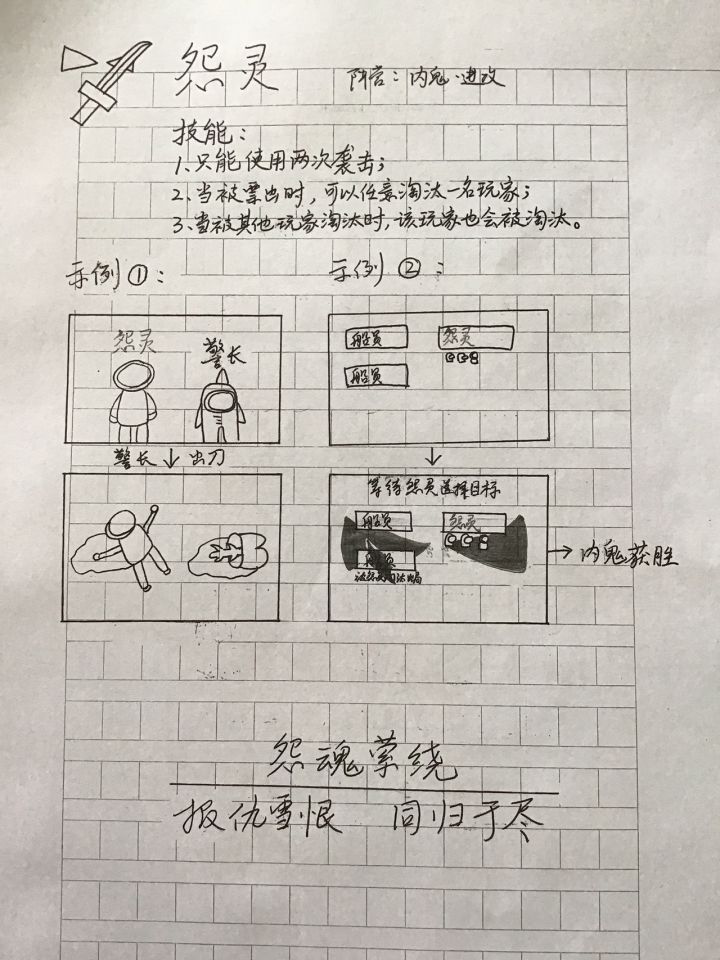 怨灵
阵营：内鬼·进攻
技能：
1、只能使用两次袭击；
2、当被票出时，可以任意淘汰一名玩家；
3、当被其他玩家淘汰时，该玩家也会被淘汰。
示例①：
示例②：
怨灵
警长
警长 出刀
船员
怨灵
船员
等待怨灵选择目标
船员
怨灵
船员
被怨灵淘汰出局
内鬼获胜
怨魂萦绕
报仇雪恨 同归于尽